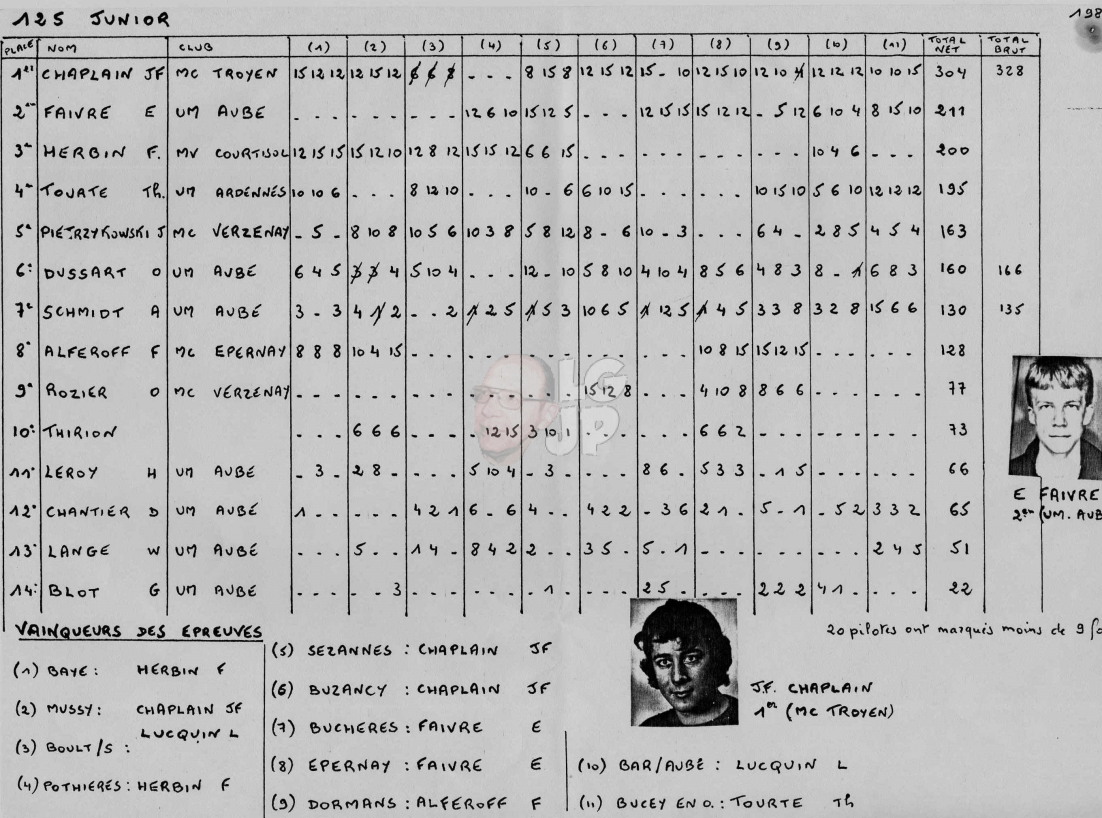 125 JUNIOR 198
PLACE NOM CLUB (1) (2) (3) (4) (5) (6) (7) (8) (9) (10) (11) TOTAL NET TOTAL BRUT
1er CHAPLAIN JF MC TROYEN 15 12 12 12 15 12 6 6 8 - - - 8 15 8 12 15 12 15 - 10 12 15 10 12 10 4 12 12 12 10 10 15 304 328
2em FAIVRE E UM AUBE - - - - - - - - - 12 6 10 15 12 5 - - - 12 15 15 15 12 12 - 5 12 6 10 4 8 15 10 211
3e HERBIN F. MV COURTISOL 12 15 15 15 12 10 12 8 12 15 15 12 6 6 15 - - - - - - - - - - - - 10 4 6 - - - 200
4e TOURTE Th. UM ARDENNES 10 10 6 - - - 8 12 10 - - - 10 - 6 6 10 15 - - - - - - 10 15 10 5 6 10 12 12 12 195
5e PIETRZYKOWSKI J MC VERZENAY - 5 - 8 10 8 10 5 6 10 3 8 5 8 12 8 - 6 10 - 3 - - - 6 4 - 2 8 5 4 5 4 163
6e DUSSART O UM AUBE 6 4 5 3 3 4 5 10 4 - - - 12 - 10 5 8 10 4 10 4 8 5 6 4 8 3 8 - 1 6 8 3 160 166
7e SCHMIDT A UM AUBE 3 - 3 4 1 2 - - 2 1 2 5 1 5 3 10 6 5 1 12 5 1 4 5 3 3 8 3 2 8 15 6 6 130 135
8e ALFEROFF F MC EPERNAY 8 8 8 10 4 15 - - - - - - - - - - - - - - - 10 8 15 15 12 15 - - - - - - 128
9e ROZIER O MC VERZENAY - - - - - - - - - - - - - - - 15 12 8 - - - 4 10 8 8 6 6 - - - - - - 77
10e THIRION - - - 6 6 6 - - - - 12 15 3 10 1 - - - - - - 6 6 2 - - - - - - - - - 73
11e LEROY H UM AUBE - 3 - 2 8 - - - - 5 10 4 - 3 - - - - 8 6 - 5 3 3 - 1 5 - - - - - - 66
12e CHANTIER D UM AUBE 1 - - - - - 4 2 1 6 - 6 4 - - 4 2 2 - 3 6 2 1 - 5 - 1 - 5 2 3 3 2 65
13e LANGE W UM AUBE - - - 5 - - 1 4 - 8 4 2 2 - - 3 5 - 5 - 1 - - - - - - - - - 2 4 5 51
14e BLOT G UM AUBE - - - - - 3 - - - - - - - 1 - - - - 2 5 - - - - 2 2 2 4 1 - - - - 22
E FAIVRE
2em (UM. AUB
20 pilotes ont marqués moins de 9
VAINQUEURS DES EPREUVES
(1) BAYE : HERBIN F
(2) MUSSY : CHAPLAIN JF
(3) BOULT/S : LUCQUIN L
(4) POTHIERES : HERBIN F
(5) SEZANNES : CHAPLAIN JF
(6) BUZANCY : CHAPLAIN JF
(7) BUCHERES : FAIVRE E
(8) EPERNAY : FAIVRE E
(9) DORMANS : ALFEROFF F
J.F. CHAPLAIN
1er (MC TROYEN)
(10) BAR/AUBE : LUCQUIN L
(11) BUCEY EN O. : TOURTE Th
LG UP